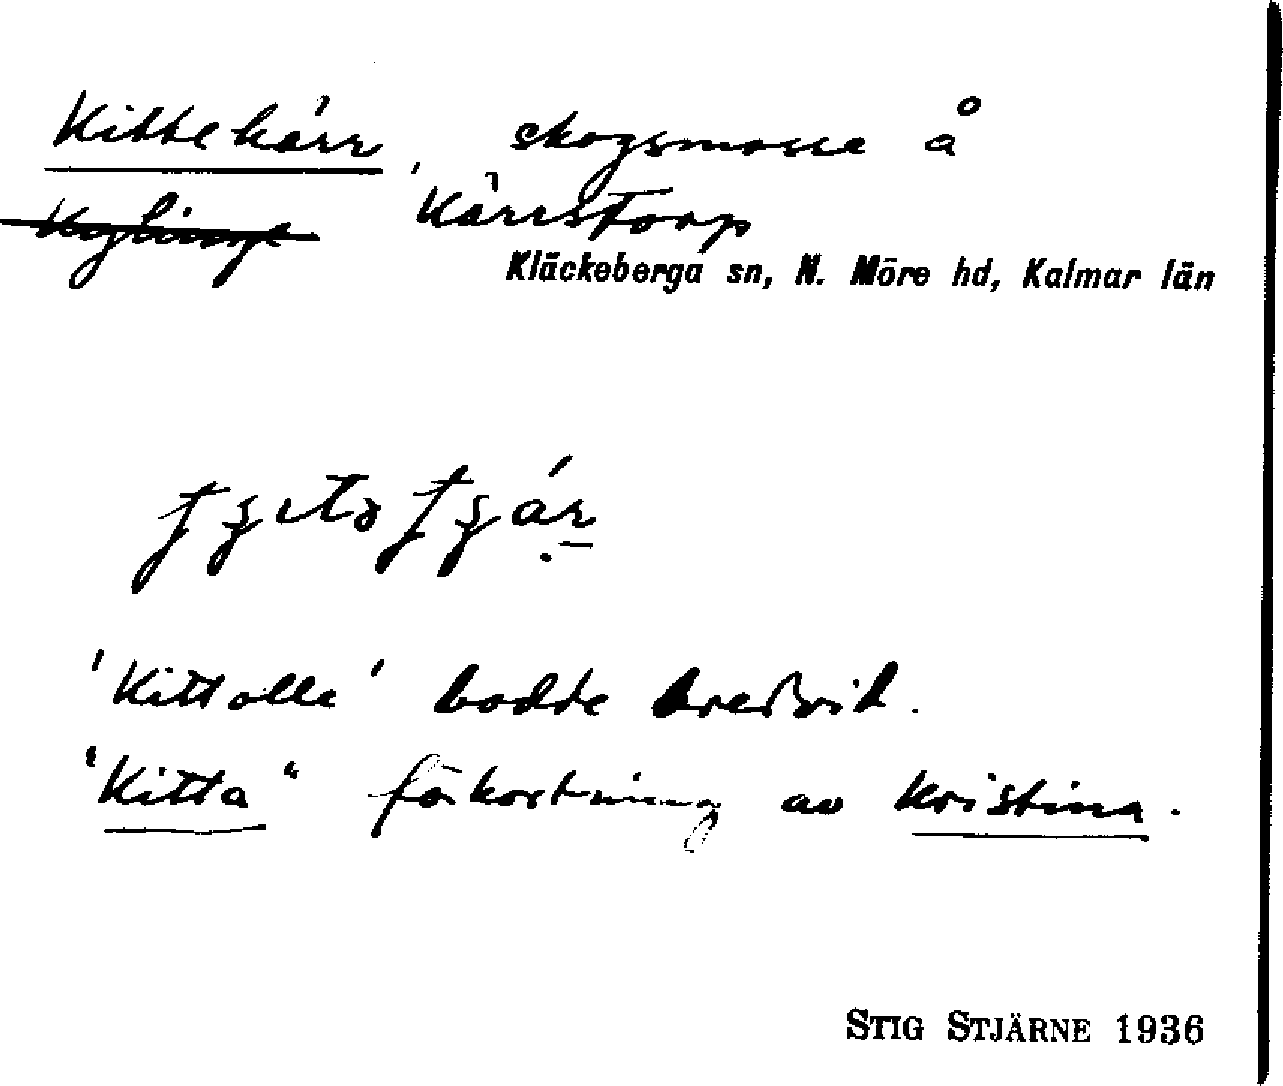 Kittekärr, skogsmosse å
Kylinge Kärrstorp
Kläckeberga sn, N. Möre hd, Kalmar län
'Kittolle' bodde bredvid.
"Kitta" förkortning av Kristina.
STIG STJÄRNE 1936